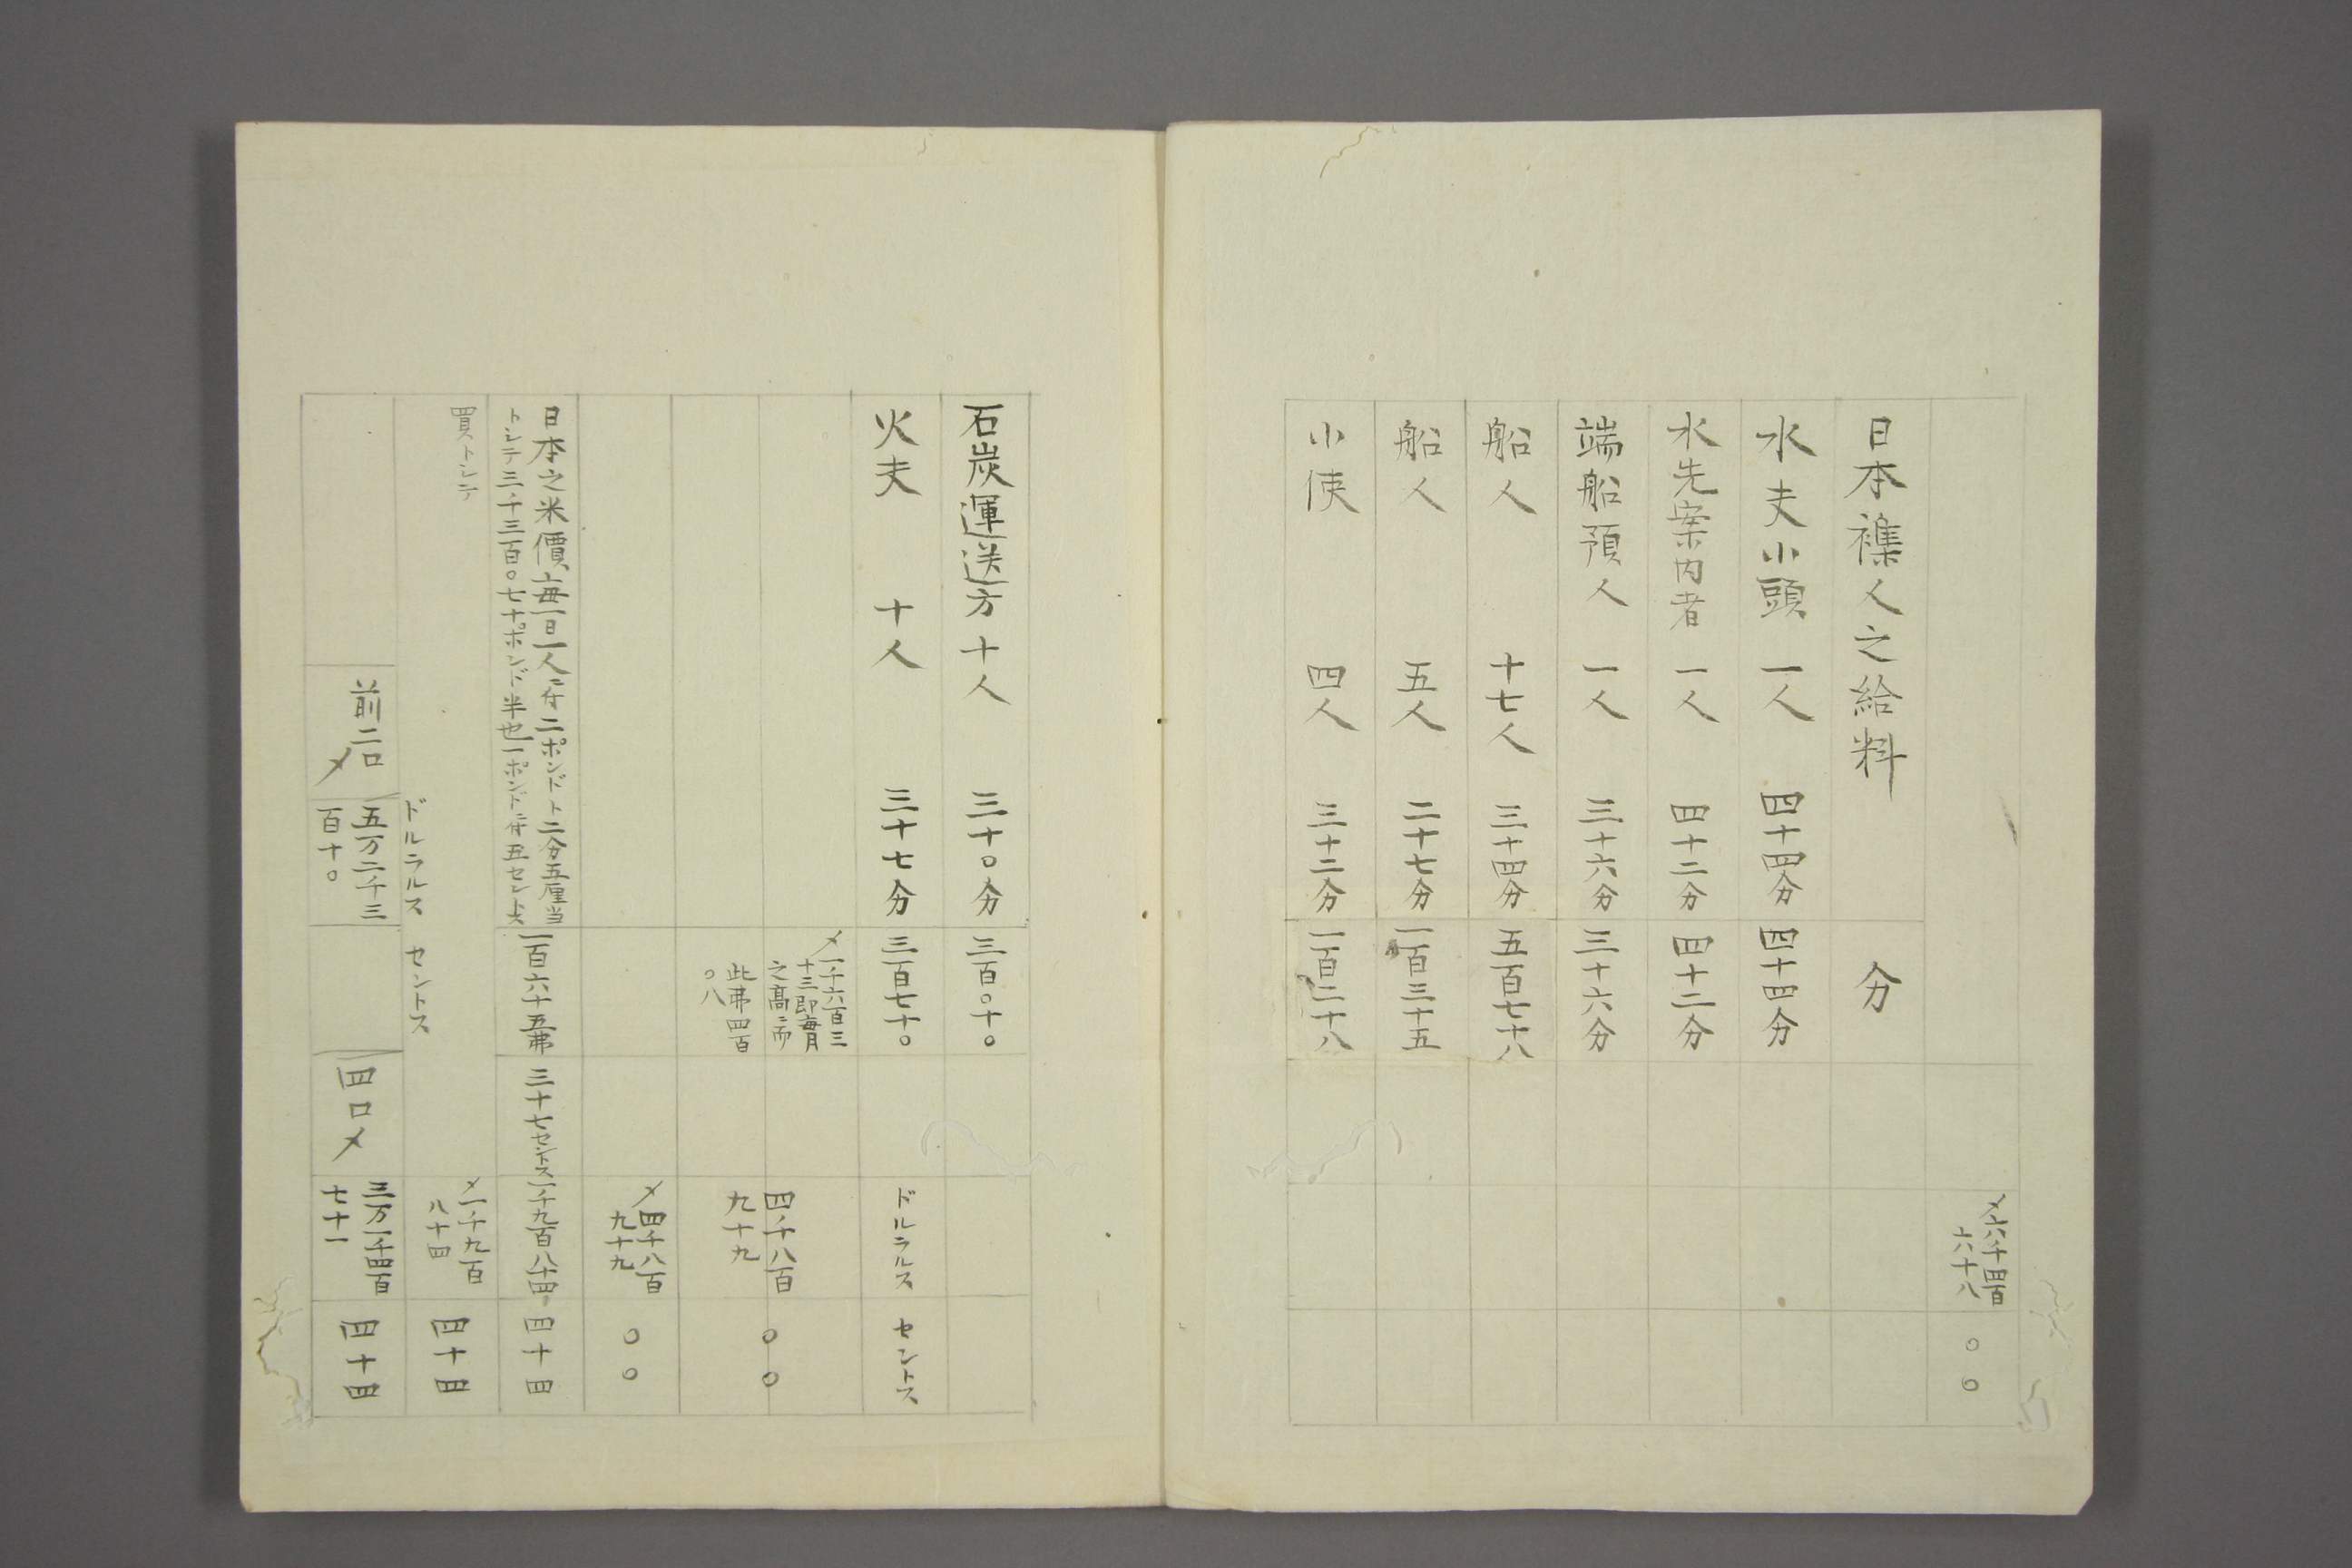 〆六千四百
六十八
〇〇
日本襍人之給料
分
水夫小頭 一人 四十四分 四十四分
水先案内者 一人 四十二分 四十二分
端船預人 一人 三十六分 三十六分
船人 十七人 三十四分 五百七十八
船人 五人 二十七分 一百三十五
小使 四人 三十二分 一百二十八
石炭運送方 十人 三十〇分 三百〇十〇
火夫 十人 三十七分 三百七十〇
ドルラルス セントス
〆一千六百三
十三即毎月
之高ニ而
此弗四百
〇八
四千八百
九十九
〇〇
〆四千八百
九十九
〇〇
日本之米價毎一日一人ニ付二ポンドト二分五厘当
トシテ三千三百〇七十ポンド半也一ポンドニ付五セントス
一百六十五弗
三十七セントス
一千九百八十四
四十四
買トシテ
〆一千九百
八十四
四十四
ドルラルス セントス
前二口
〆
五万二千三
百十〇
四口〆
三万一千四百
七十一
四十四